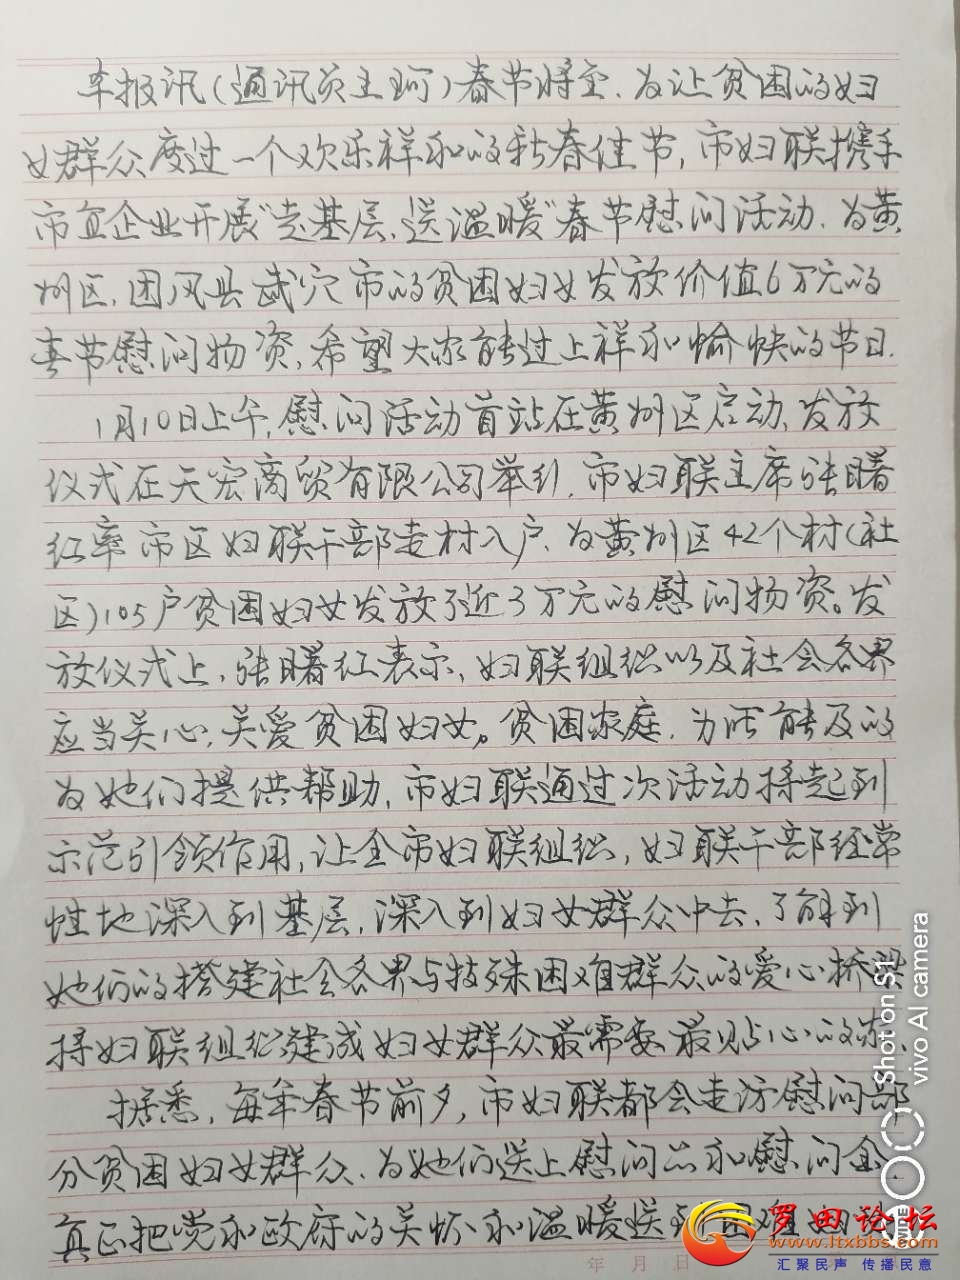 本报讯(通讯员王珂)春节将至,为让贫困的妇
女群众度过一个欢乐祥和的新春佳节,市妇联携手
市直企业开展“走基层、送温暖”春节慰问活动,为黄
州区,团风县武穴市的贫困妇女发放价值6万元的
春节慰问物资,希望大家能过上祥和愉快的节日.
1月10日上午,慰问活动首站在黄州区启动,发放
仪式在天宏商贸有限公司举行,市妇联主席张曙
红率市区妇联干部走村入户,为黄州区42个村(社
区)105户贫困妇女发放了近3万元的慰问物资。发
放仪式上,张曙红表示,妇联组织以及社会各界
应当关心,关爱贫困妇女。贫困家庭,力所能及的
为她们提供帮助,市妇联通过次活动将起到
示范引领作用,让全市妇联组织,妇联干部经常
性地深入到基层,深入到妇女群众中去,了解到
她们的搭建社会各界与技殊困难群众的爱心桥梁
将妇联组织建成妇女群众最需要最贴心的家,
据悉,每年春节前夕,市妇联都会走访慰问部
分贫困妇女群众,为她们送上慰问品和慰问金.
真正把党和政府的关怀和温暖送到困难
年 月 日
Shot on S1
vivo AI camera
罗田论坛
www.ltxbbs.com
汇聚民声 传播民意